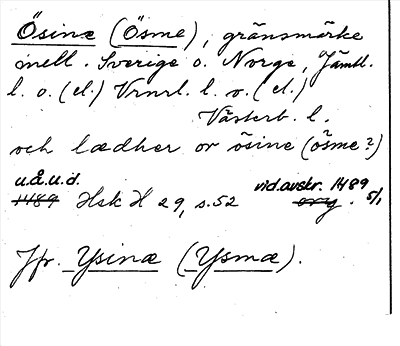 Ösinæ (Ösme), gränsmärke
mell. Sverige o. Norge, Jämtl.
l. o. (el.) Vrml. l. o. (el.)
Västerb. l.
och lædher or ösine (ösme?)
u.å.u.d. vid.avskr. 1489
1489 Hsk H 29, s. 52 orig. 5/1
Jfr. Ysinæ (Ysmæ).